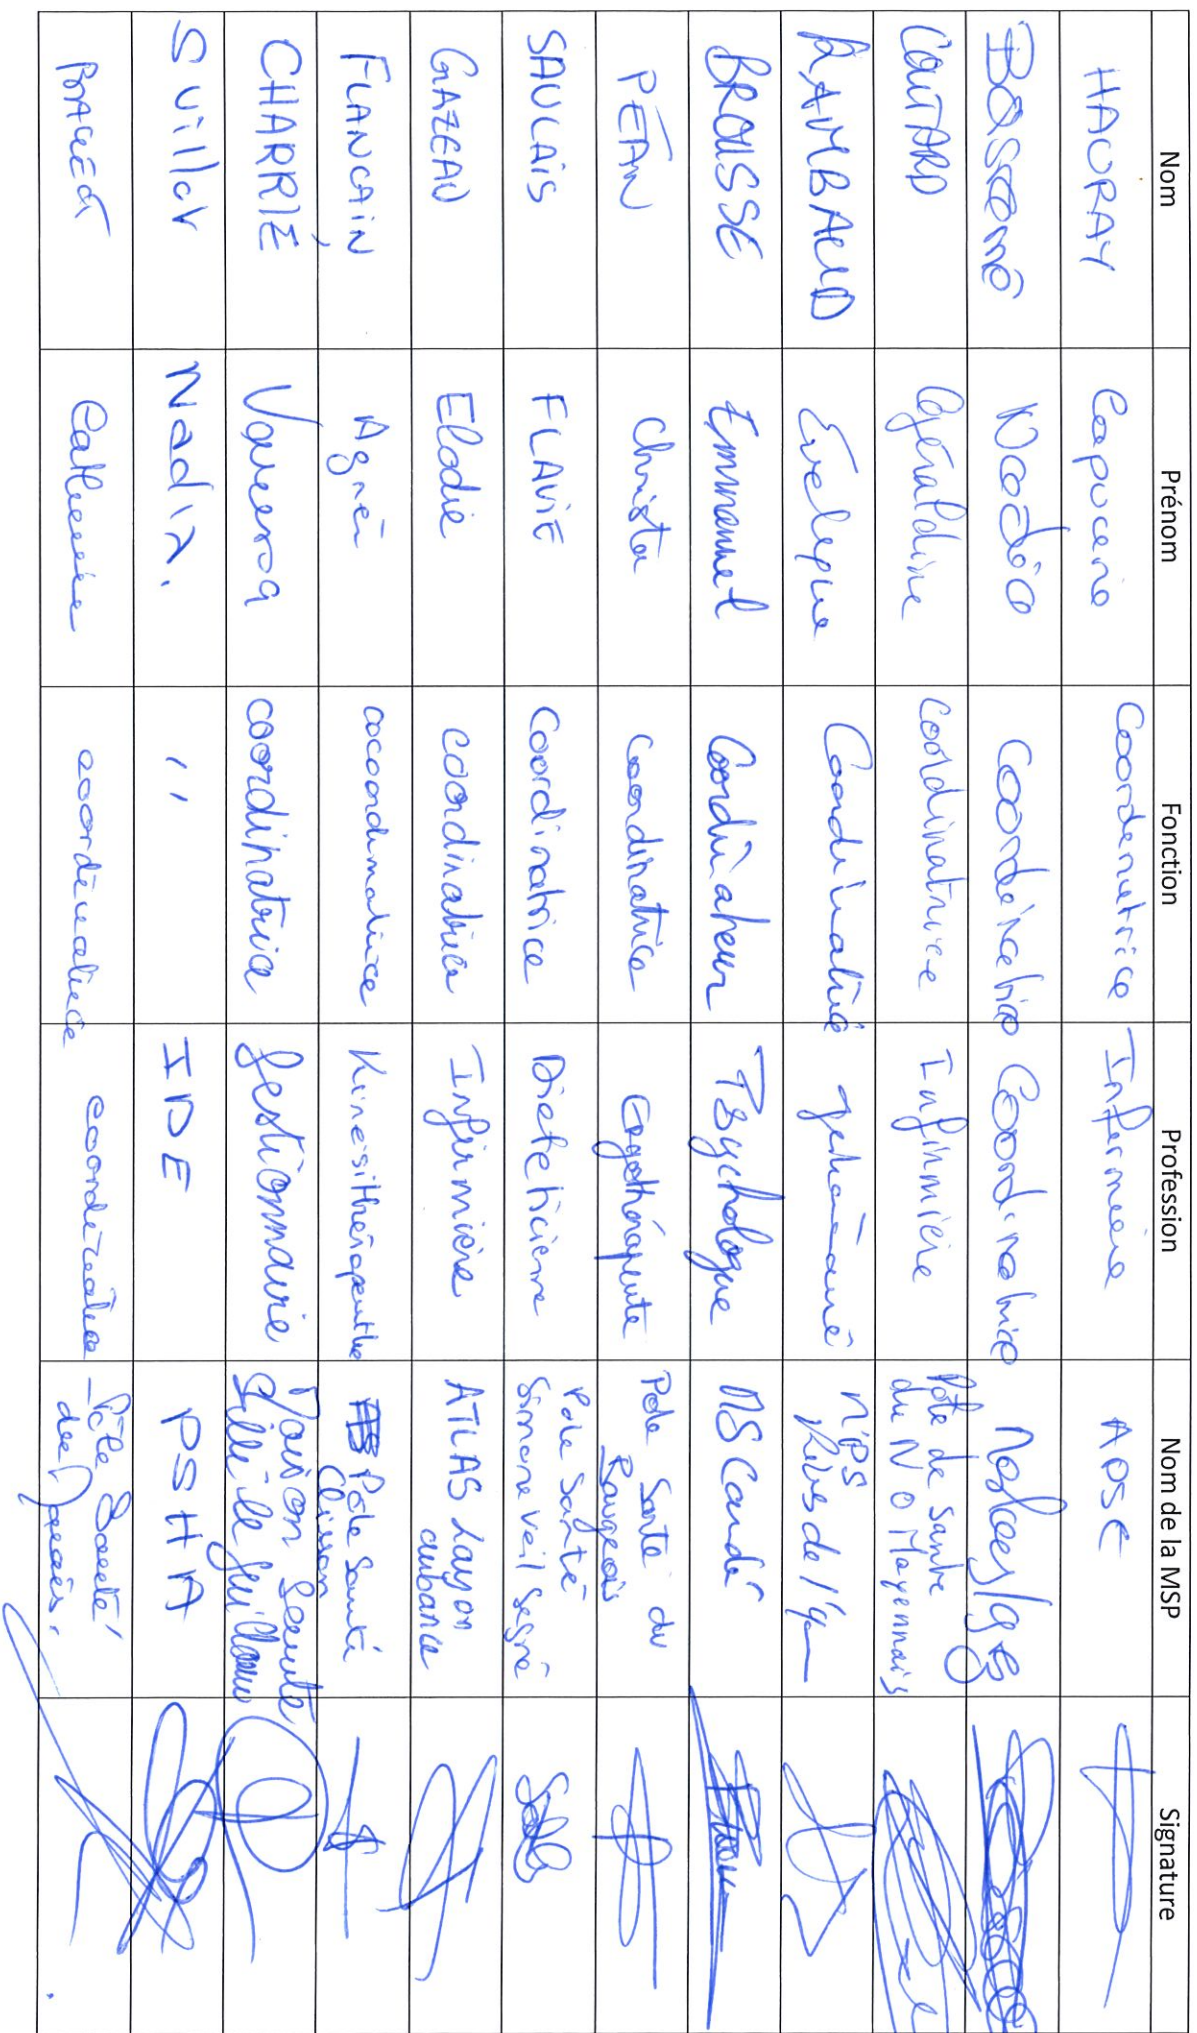 Nom Prénom Fonction Profession Nom de la MSP Signature
HAURAY Capucine Coordinatrice Infirmière ADSC
Nadia Coordinatrice Coordinatrice
COUTARD Géraldine Coordinatrice Infirmière Pôle de santé
du N O Mayennais
RAMBAUD Evelyne Coordinatrice MPS
Rives de l'
BROUSSE Emmanuel Coordinateur Psychologue MS Candé
PÉAN Christa Coordinatrice Ergothérapeute Pole Santé du
Baugeois
SAULAIS FLAVIE Coordinatrice Diététicienne Pole Santé
Simone Veil Segré
GAZEAU Elodie coordinatrice Infirmière ATLAS Layon
aubance
FLANCAIN Agnès cocoordinatrice Kinésithérapeuthe Pôle Santé
Clisson
CHARRIÉ Vanessa coordinatrice gestionnaire Maison Santé
Sillé le Guillaume
Nadia. '' IDE PSHA
Catherine coordinatrice coordinatrice - Pôle Santé